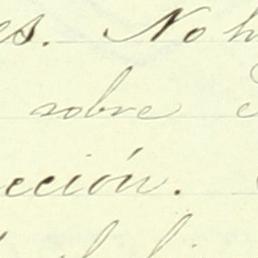 es. No h
sobre
ección.